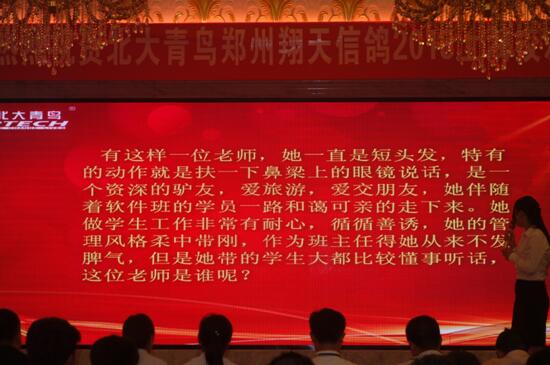 贺北大青鸟郑州翔天信鸽201
北大青鸟
TECH
有这样一位老师，她一直是短头发，特有
的动作就是扶一下鼻梁上的眼镜说话，是一
个资深的驴友，爱旅游，爱交朋友，她伴随
着软件班的学员一路和蔼可亲的走下来。她
做学生工作非常有耐心，循循善诱，她的管
理风格柔中带刚，作为班主任得她从来不发
脾气，但是她带的学生大都比较懂事听话，
这位老师是谁呢？